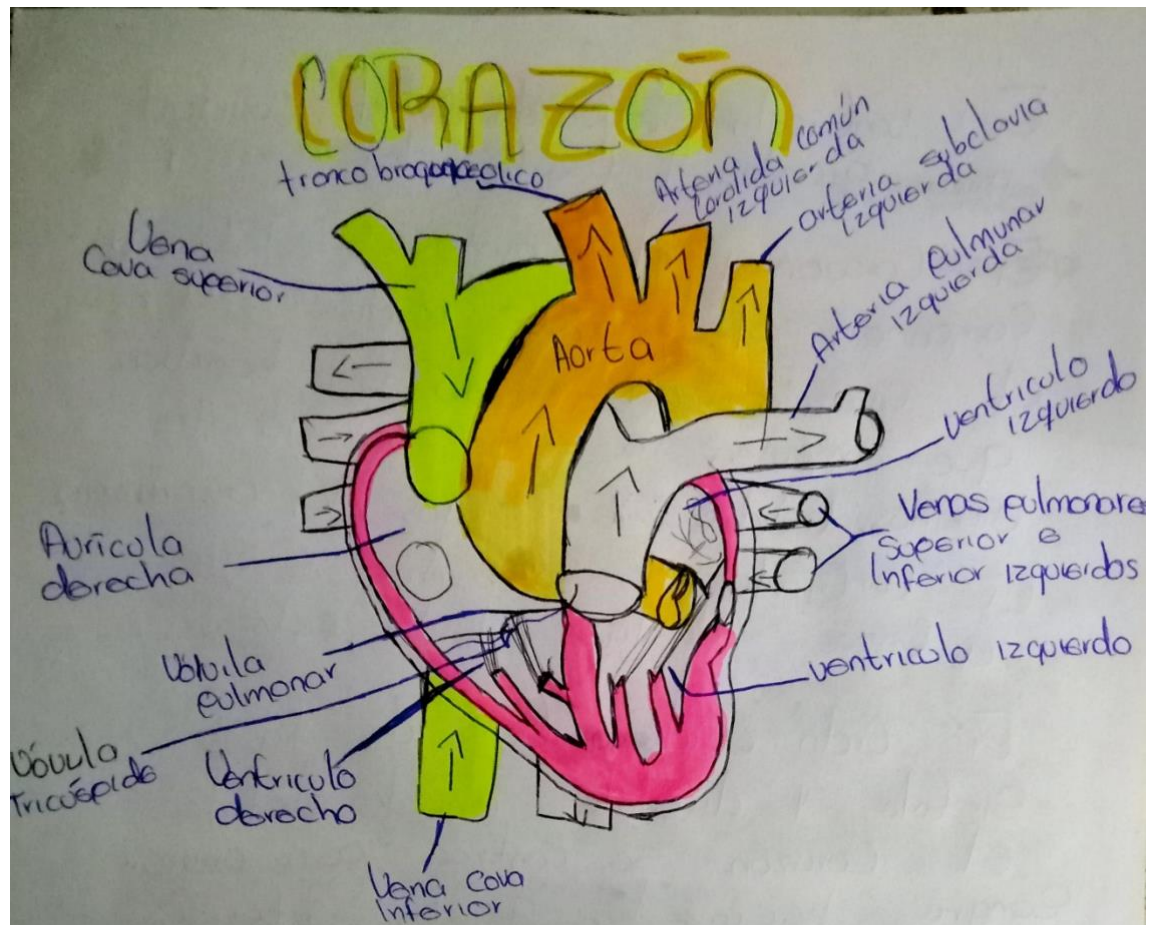 CORAZÓN
tronco
Arteria
común
izquierda
arteria subclavia
izquierda
Arteria pulmunar
izquierda
Vena
Cava superior
Aorta
ventriculo
izquierdo
Venas pulmonares
Superior e
Inferior izquierdas
Aurícula
derecha
pulmonar
ventriculo izquierdo
tricúspide
Ventriculo
derecho
Vena Cava
Inferior